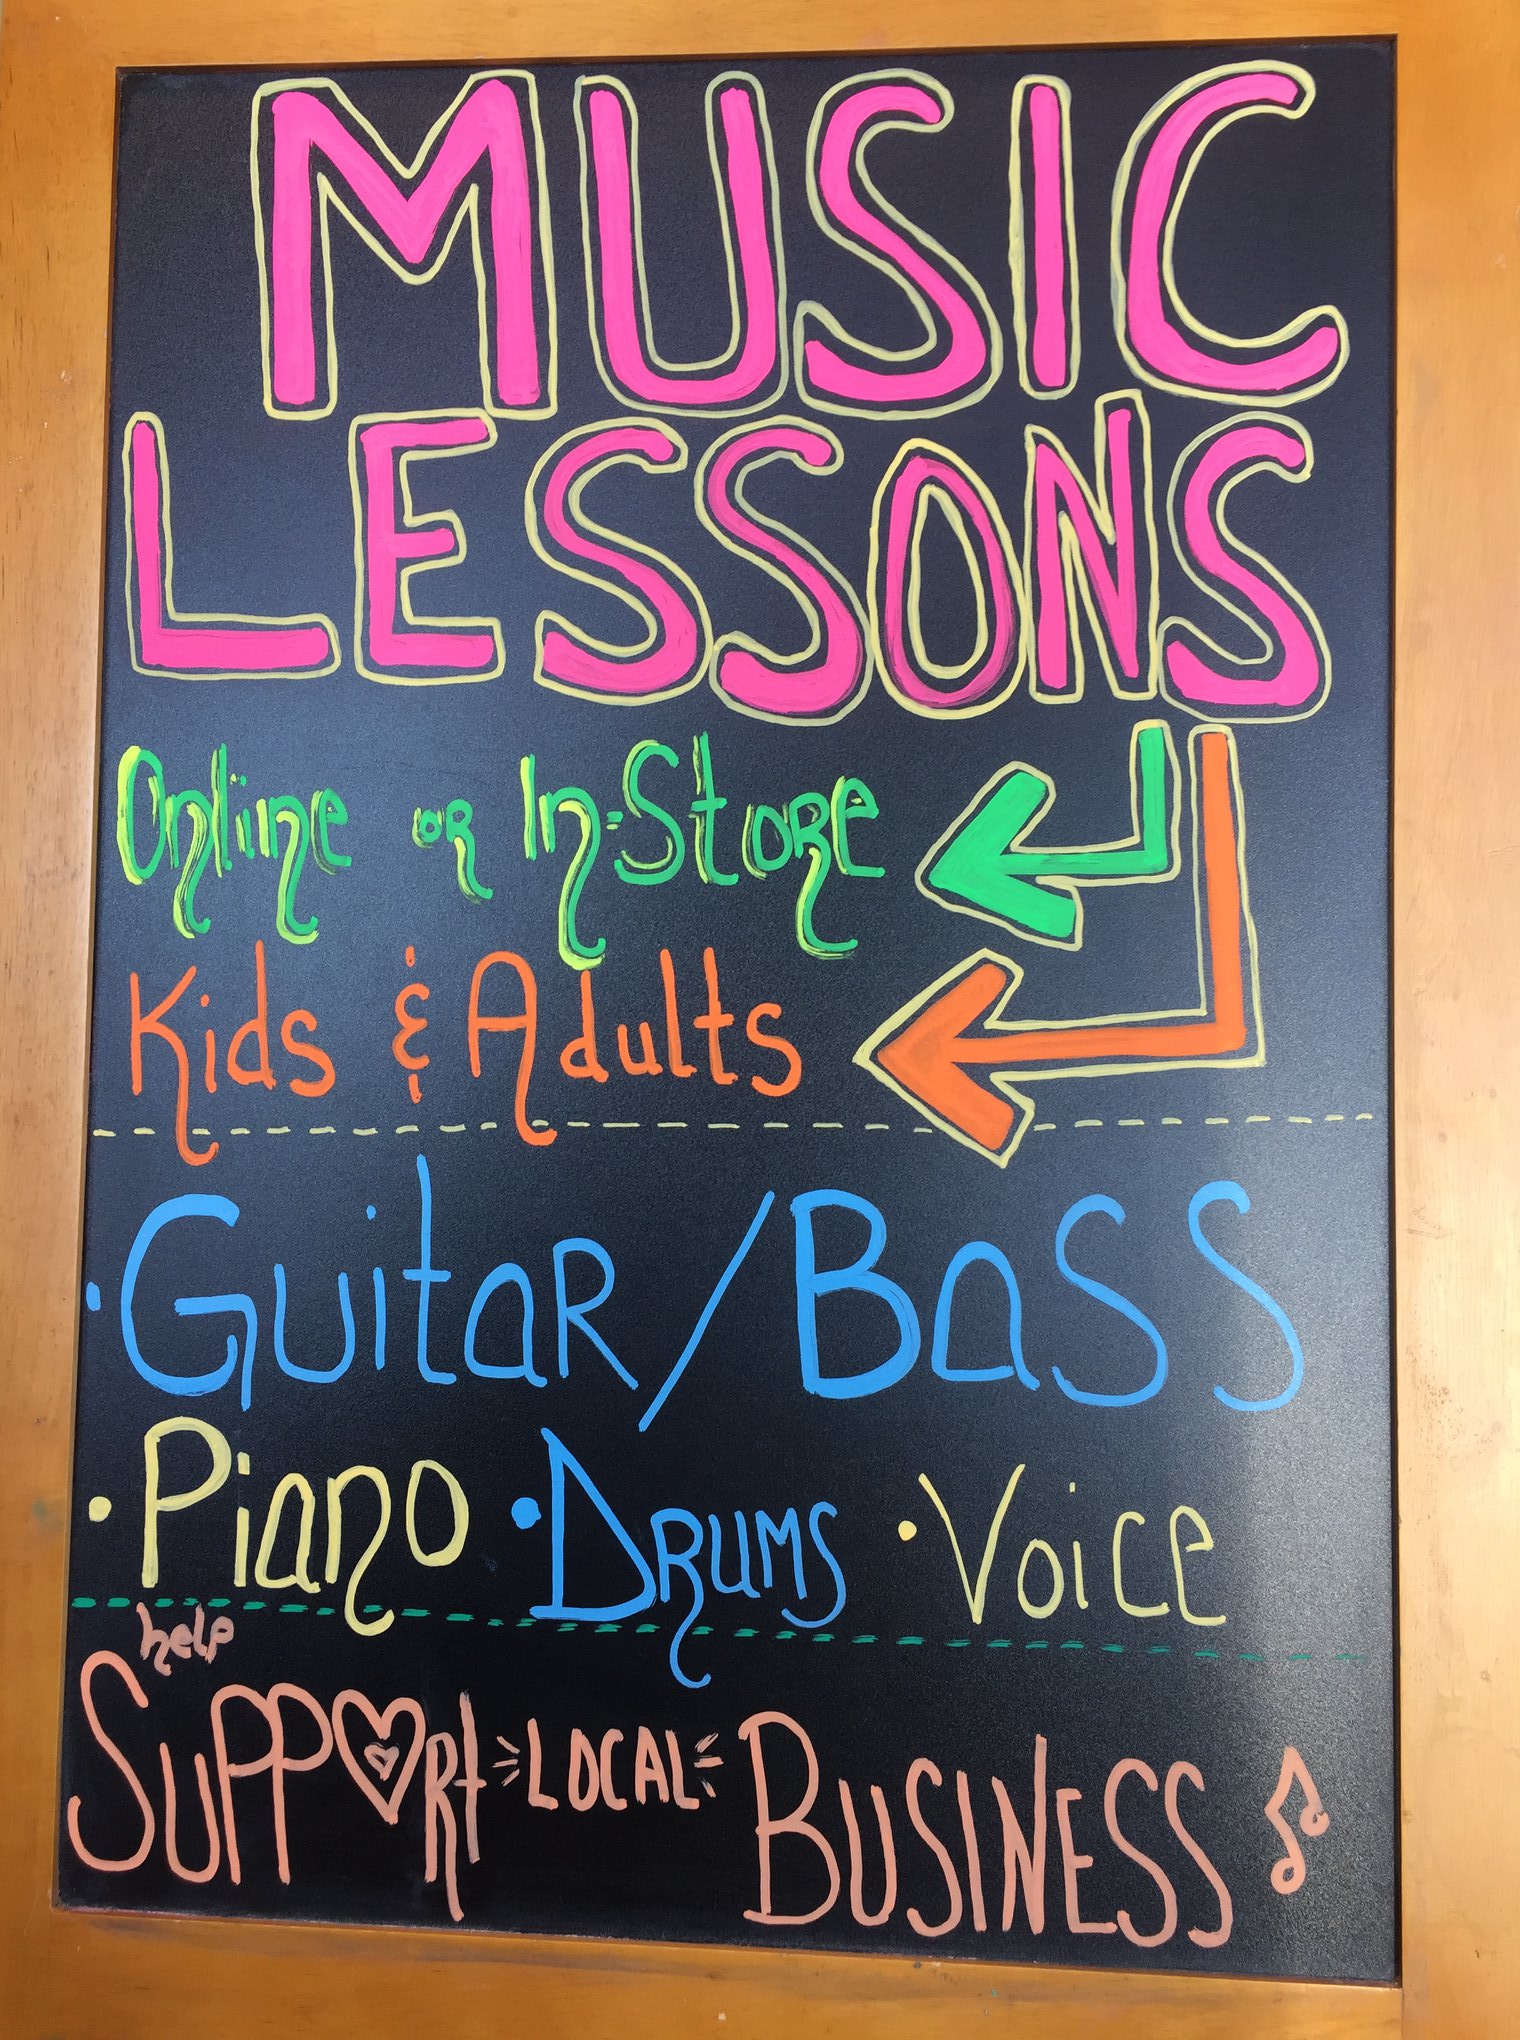 MUSIC
LESSONS
Online or In-Store
Kids & Adults
• Guitar/Bass
• Piano • Drums • Voice
help
Support LOCAL BUSINESS